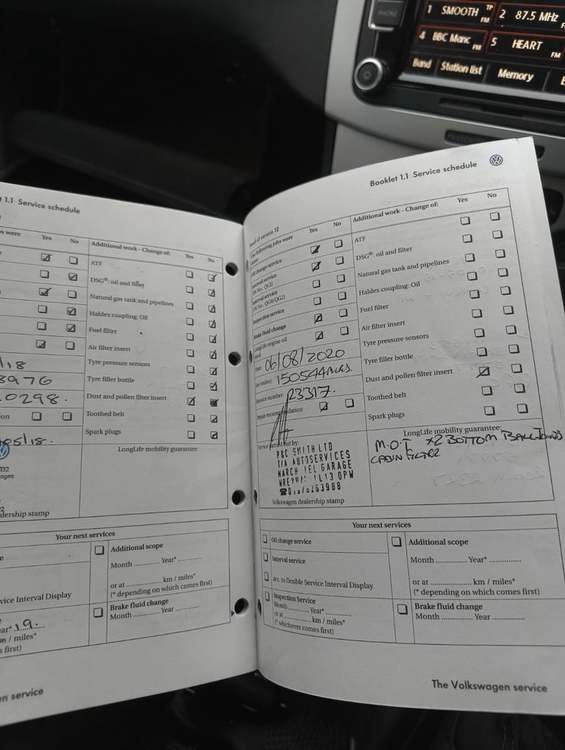 1 SMOOTH FM TP
2 87.5 MHz
4 BBC Manc FM
5 HEART FM
Band Station list Memory
PHONE
1.1 Service schedule
Yes No
Additional work - Change of: Yes No
ATF
DSG®: oil and filter
Natural gas tank and pipelines
Haldex coupling: Oil
Fuel filter
Air filter insert
Tyre pressure sensors
Tyre filler bottle
Dust and pollen filter insert
Toothed belt
Spark plugs
LongLife mobility guarantee:
dealership stamp
Your next services
Additional scope
Month Year*
or at km / miles*
(* depending on which comes first)
Service Interval Display
Brake fluid change
Month Year
19.
km / miles*
s first)
Booklet 1.1 Service schedule
Yes No
Additional work - Change of: Yes No
Oil change service
Inspection service
Brake fluid change
ATF
DSG®: oil and filter
Natural gas tank and pipelines
Haldex coupling: Oil
Fuel filter
Air filter insert
Tyre pressure sensors
Tyre filler bottle
Dust and pollen filter insert
Toothed belt
Spark plugs
06/08/2020
150544 MILES
23317.
P&C SMITH LTD
T/A AUTOSERVICES
GARAGE
Volkswagen dealership stamp
LongLife mobility guarantee:
M.O.T x2 BOTTOM
Your next services
Oil change service
Interval service
acc. to flexible Service Interval Display
Inspection Service
Month Year*
or at km / miles*
(* whichever comes first)
Additional scope
Month Year*
or at km / miles*
(* depending on which comes first)
Brake fluid change
Month Year
en service
The Volkswagen service